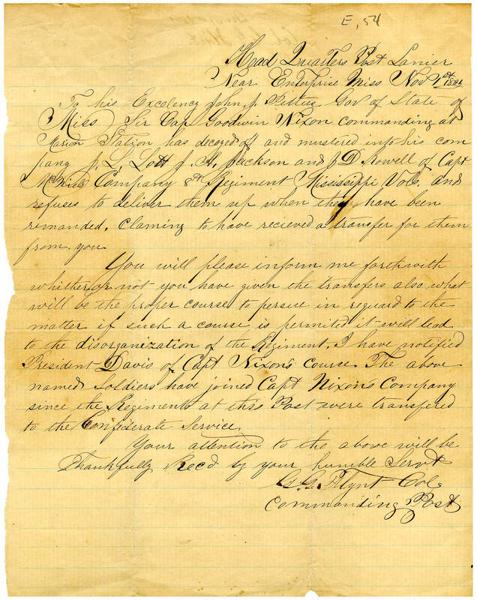 E, 54
Head Quarters Post Lanier
Near Enterprise Miss Nov 1st 1861
To his Excelency John J Pettus Gov of State of
Miss Sir Cap Goodwin Nixon commanding at
Marion Station has decoyed off and mustered into his com
pany J. L. Lott J. A. Jackson and J D Howell of Capt
Company 8th Regiment Mississippi Vols, and
refuses to deliver them up when they have been
remanded, claming to have recieved a transfer for them
from you
You will please inform me forthwith
whither or not you have given the transfers also what
will be the proper course to persue in regard to the
matter if such a course is permited it will lead
to the disorganization of the Regiment, I have notified
President Davis of Capt Nixon's Course. The above
named Soldiers have joined Capt Nixon's Company
since the Regiments at this Post were transfered
to the Confederate Service.
Your attention to the above will be
Thankfully Recd by your humble Servt
G. G. Flynt Col
Commanding Post